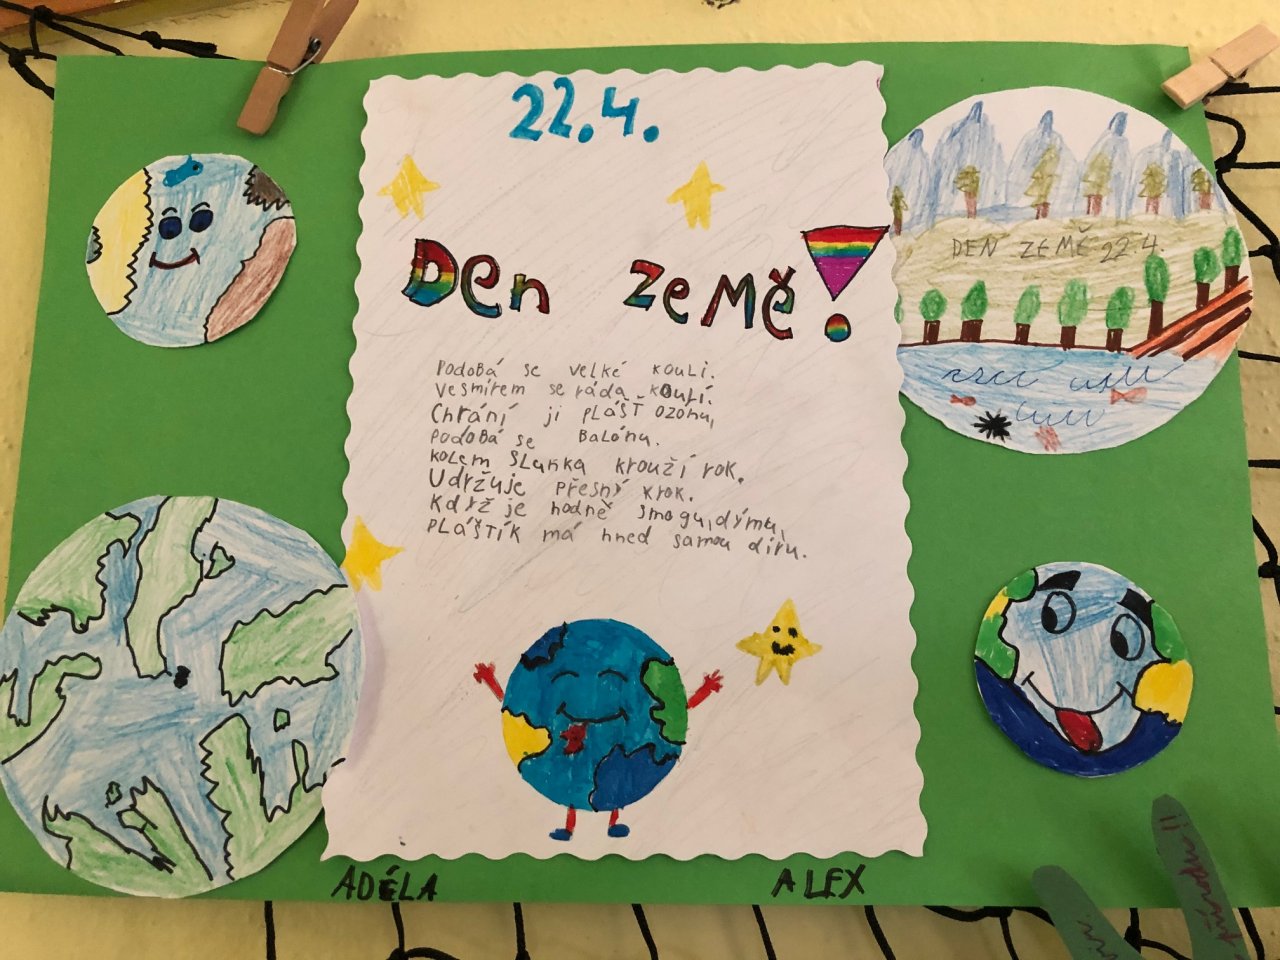 22.4.
Den země!
Podobá se velké kouli.
Vesmírem se ráda koulí.
Chrání ji plášť ozónu,
podobá se balónu.
kolem slunka krouží rok.
Udržuje přesný krok.
Když je hodně smogu, dýmu,
pláštík má hned samou díru.
DEN ZEMĚ 22.4.
ADÉLA
ALEX
přírodu!!